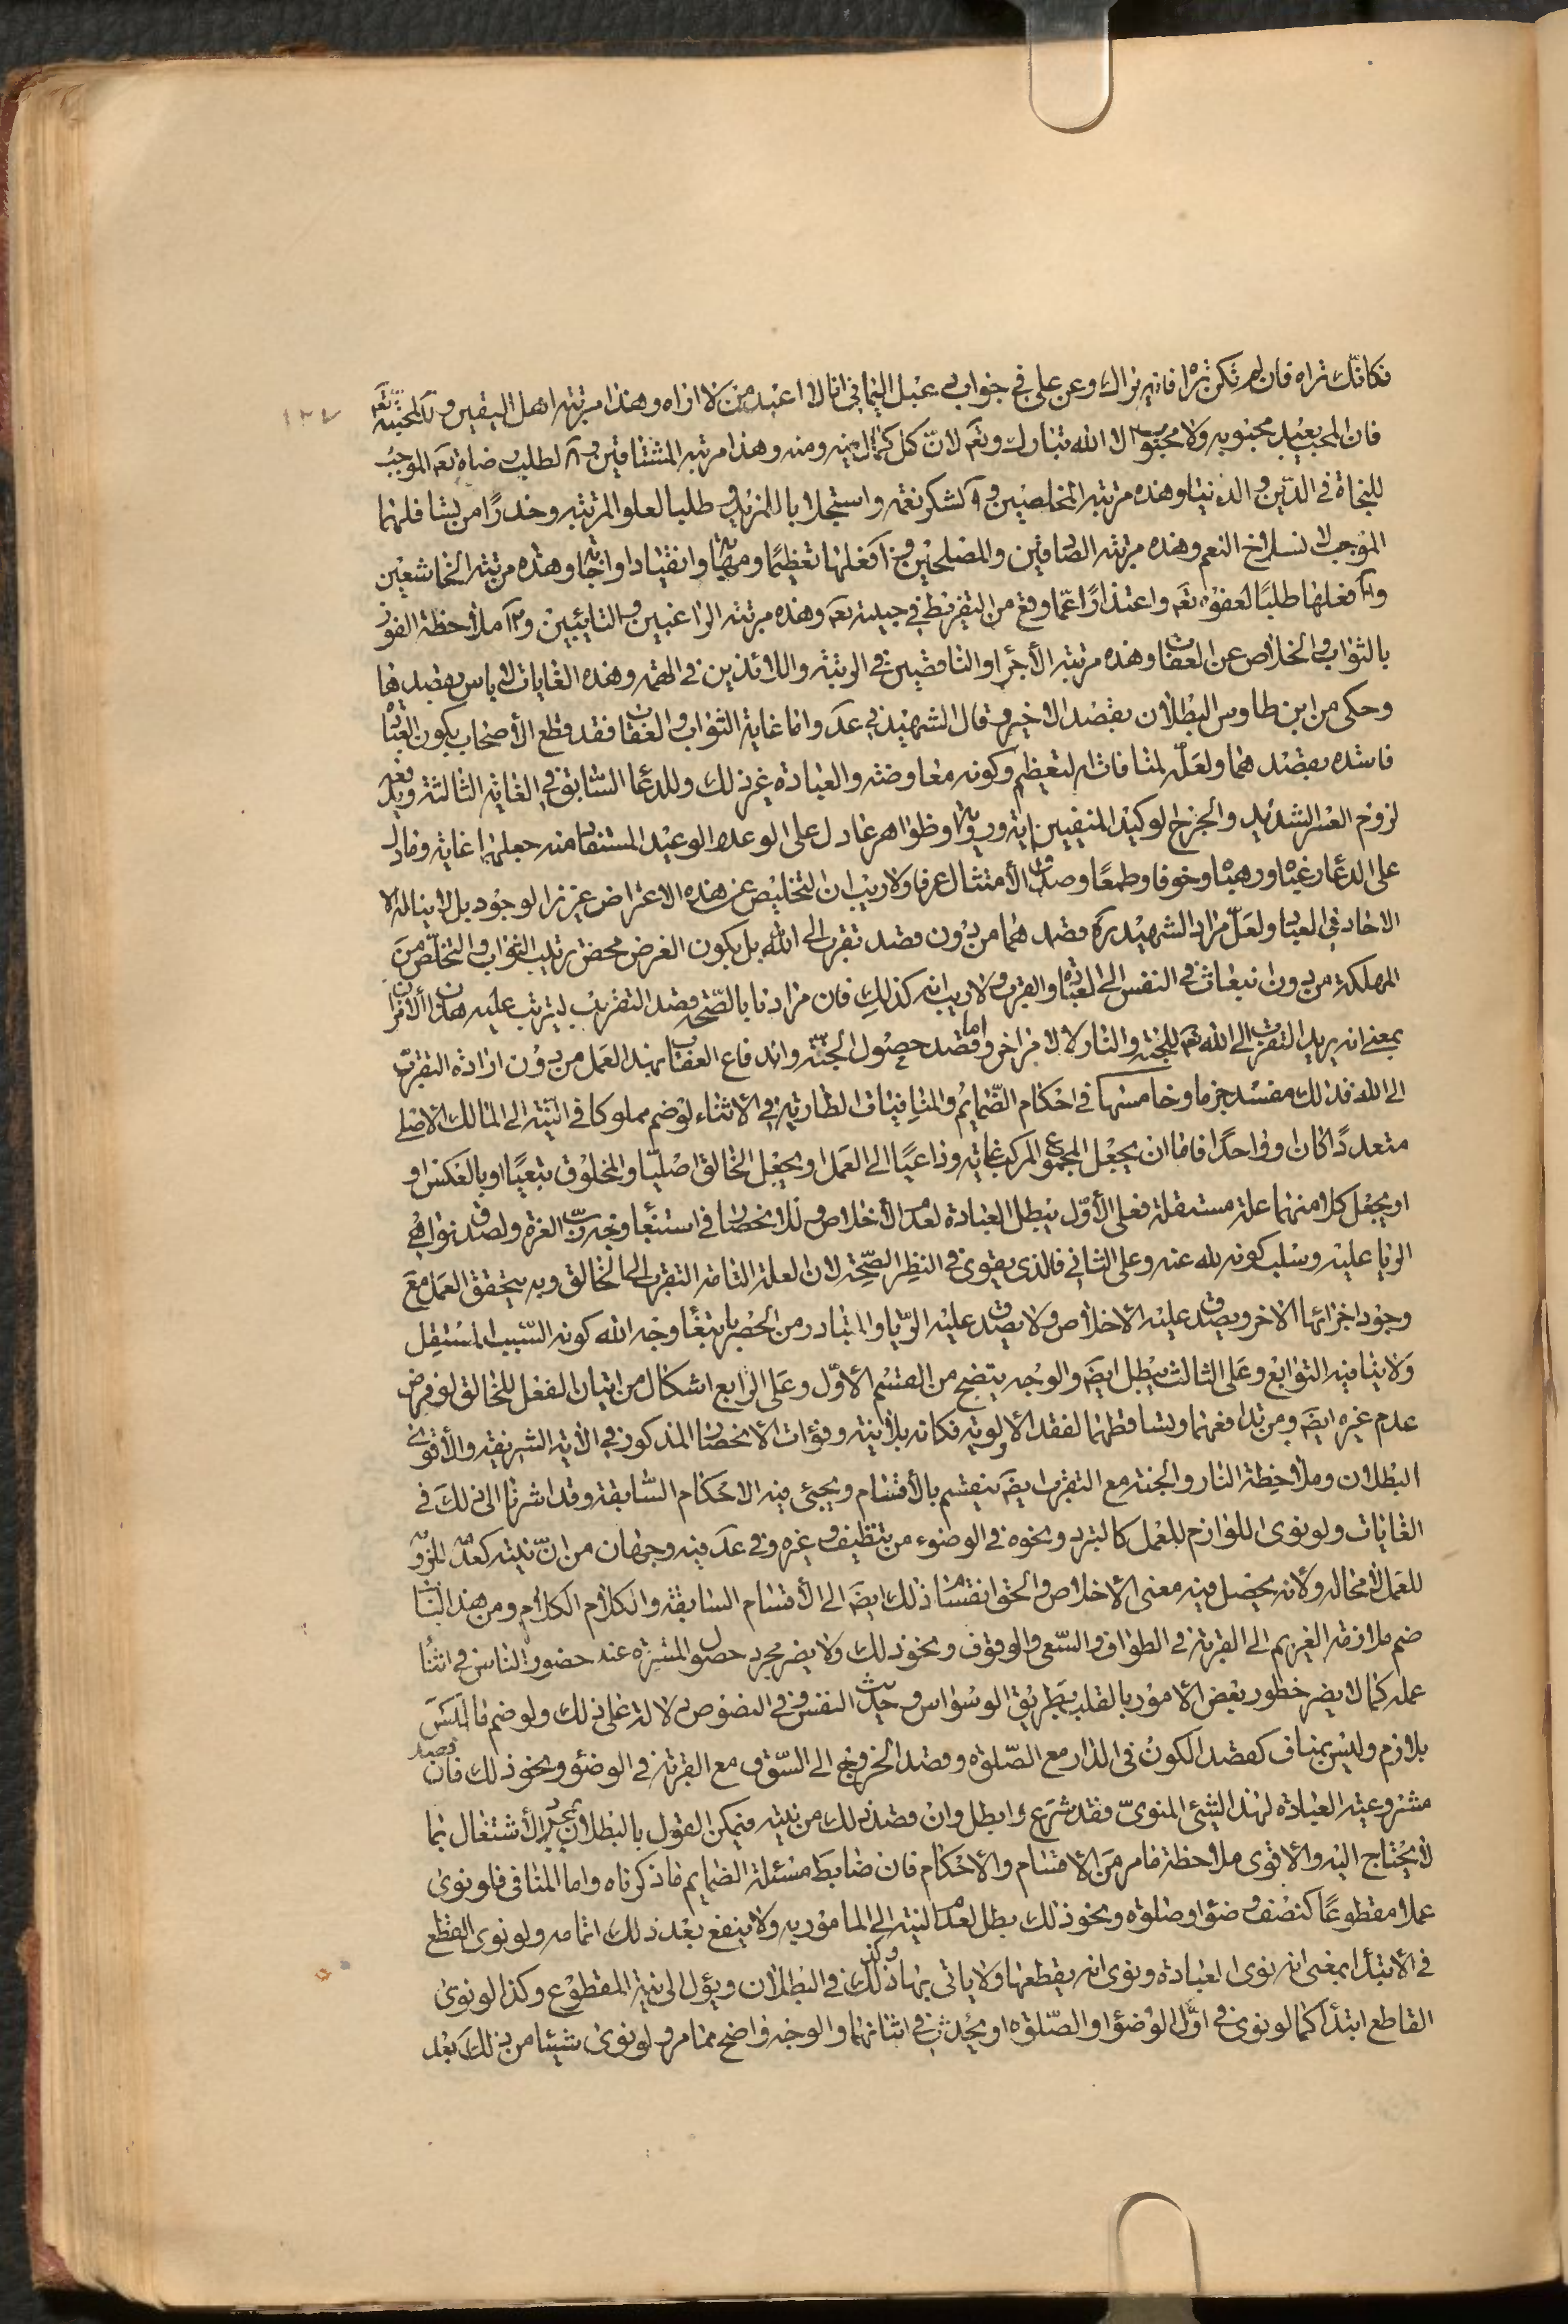 فكانك تراه فان لم تكن تراه فانه يراك وعن علي في جواب دعبل اليماني انا لا اعبد من لا اراه وهذا مرتبة اهل اليقين و لمحبته تعه
فان المحب يعبد محبوبه ولا محبوب الا الله تبارك وتعه لان كل كمال منه ومنه وهذا مرتبة المشتاقين و لطلب رضاه تعه الموجب
للنجاة في الدين والدنيا وهذه مرتبة المخلصين و لشكر نعمه واستجلابا للمزيد و طلبا لعلو المرتبة وحذرا من
الموجب لانسلاخ النعم وهذه مرتبة والمصلحين و فعلها تعظيما ومهابة وانقيادا واجابة وهذه مرتبة الخاشعين
و فعلها طلبا لعفوه تعه واعتذارا عما وقع من التفريط في جنبه تعه وهذه مرتبة الراغبين والتائبين و ملاحظة الفوز
بالثواب والخلاص عن العقاب وهذه مرتبة الأجراء والناقصين في الرتبة واللائذين في الهمة وهذه الغايات لا باس بقصدها
وحكى من ابن طاوس البطلان بقصد الاخير وقال الشهيد في عد واما غاية الثواب والعقاب فقد قطع الأصحاب بكون العبادة
فاسدة بقصدهما ولعله لمنافاته لتعظيم وكونه معاوضة والعبادة غير ذلك وللدعاء السابق في الغاية الثالثة وفيه
لزوم العسر الشديد والحرج الوكيد المنفيين اية ورواية وظواهر عا دل على الوعد والوعيد المستفاد منه جعلهما غاية وما دل
على الدعاء رغبة ورهبة وخوفا وطمعا وصدق الأمتثال عرفا ولا ريب ان التخليص عن هذه الاعراض عزيز الوجود بل لا يناله الا
الاحاد في العباد ولعل مراد الشهيد ره قصدهما من دون قصد تقرب الى الله بل يكون الغرض محض ترتب الثواب والتخلص من
المهلكة من دون انبعاث في النفس الى العبادة والقرب ولا ريب انه كذلك فان مرادنا بالصحة قصد التقرب ليترتب عليه هذان الأمران
بمعنى انه يريد التقرب الى الله تعه للجنة والنار لا لامر اخر واما قصد حصول الجنة واندفاع العقاب بهذا العمل من دون ارادة التقرب
الى الله فذلك مفسد جزما وخامسها في احكام الضمايم والمنافيات الطارية في الاثناء لو ضم مملوكا في النية الى المالك الاصلي
متعددا كان او واحدا فاما ان يجعل المجموع المركب غاية وداعيا الى العمل او يجعل الخالق اصليا والمخلوق تبعيا او بالعكس او
او يجعل كلا منهما علة مستقلة فعلى الأول يبطل العبادة لعدم الأخلاص ولانحصارها في ابتغاء وجه رب العزة ولصدق نواهي
الريا عليه وسلب كونه لله عنه وعلى الثاني فالذي يقوى في النظر الصحة لان العلة التامة التقرب الى الخالق وبه يتحقق العمل مع
وجود اجزائها الاخر ويصدق عليه الاخلاص ولا يصدق عليه الريا والمتبادر من الحصر بابتغاء وجه الله كونه السبب المستقل
ولا ينافيه التوابع وعلى الثالث يبطل ايضه والوجه يتضح من القسم الأول وعلى الرابع اشكال من اتيان الفعل للخالق لو فرض
عدم غيره ايضه ومن تدافعهما وتساقطهما لفقد الأولوية فكانه بلا نية وفوات الانحصار المذكور في الآية الشريفة والأقوى
البطلان وملاحظة النار والجنة مع التقرب ايضه ينقسم بالأقسام ويجئ فيه الاحكام السابقة وقد اشرنا الى ذلك في
الغايات ولو نوى اللوازم للعمل كالتبرد ونحوه في الوضوء من تنظيف وغيره ففي عد فيه وجهان من ان نيته كعدمه للزومه
للعمل لا محالة ولانه يحصل فيه معنى الاخلاص والحق انقسام ذلك ايضه الى الأقسام السابقة والكلام الكلام ومن هذا الباب
ضم ملازمة الغريم الى القربة في الطواف والسعى والوقوف ونحو ذلك ولا يضر مجرد حصول المسرة عند حضور الناس في اثناء
عمله كما لا يضر خطور بعض الامور بالقلب بطريق الوسواس وحديث النفس وفي النصوص دلالة على ذلك ولو ضم ما ليس
بلازم وليس بمناف كقصد الكون في الدار مع الصلوة وقصد الخروج الى السوق مع القربة في الوضوء ونحو ذلك فان قصد
مشروعية العبادة لهذا الشئ المنوي فقد شرع وابطل وان قصد ذلك من نيته فيمكن القول بالبطلان الأشتغال بما
لا يحتاج اليه والاقوى ملاحظة ما مر من الاقسام والاحكام فان ضابط مسئلة الضمايم ما ذكرناه واما المنافي فلو نوى
عملا مقطوعا كنصف وضوء او صلوة ونحو ذلك بطل لعدم النية الى المامور به ولا ينفع بعد ذلك اتمامه ولو نوى القطع
في الأبتداء بمعنى انه نوى العبادة ونوى انه يقطعها ولا ياتي بها وكذلك في البطلان ويؤل الى نية المقطوع وكذا لو نوى
القاطع ابتداء كما لو نوى في اول الوضوء او الصلوة ان يحدث في اثنائهما والوجه واضح مما مر ولو نوى شيئا من ذلك بعد